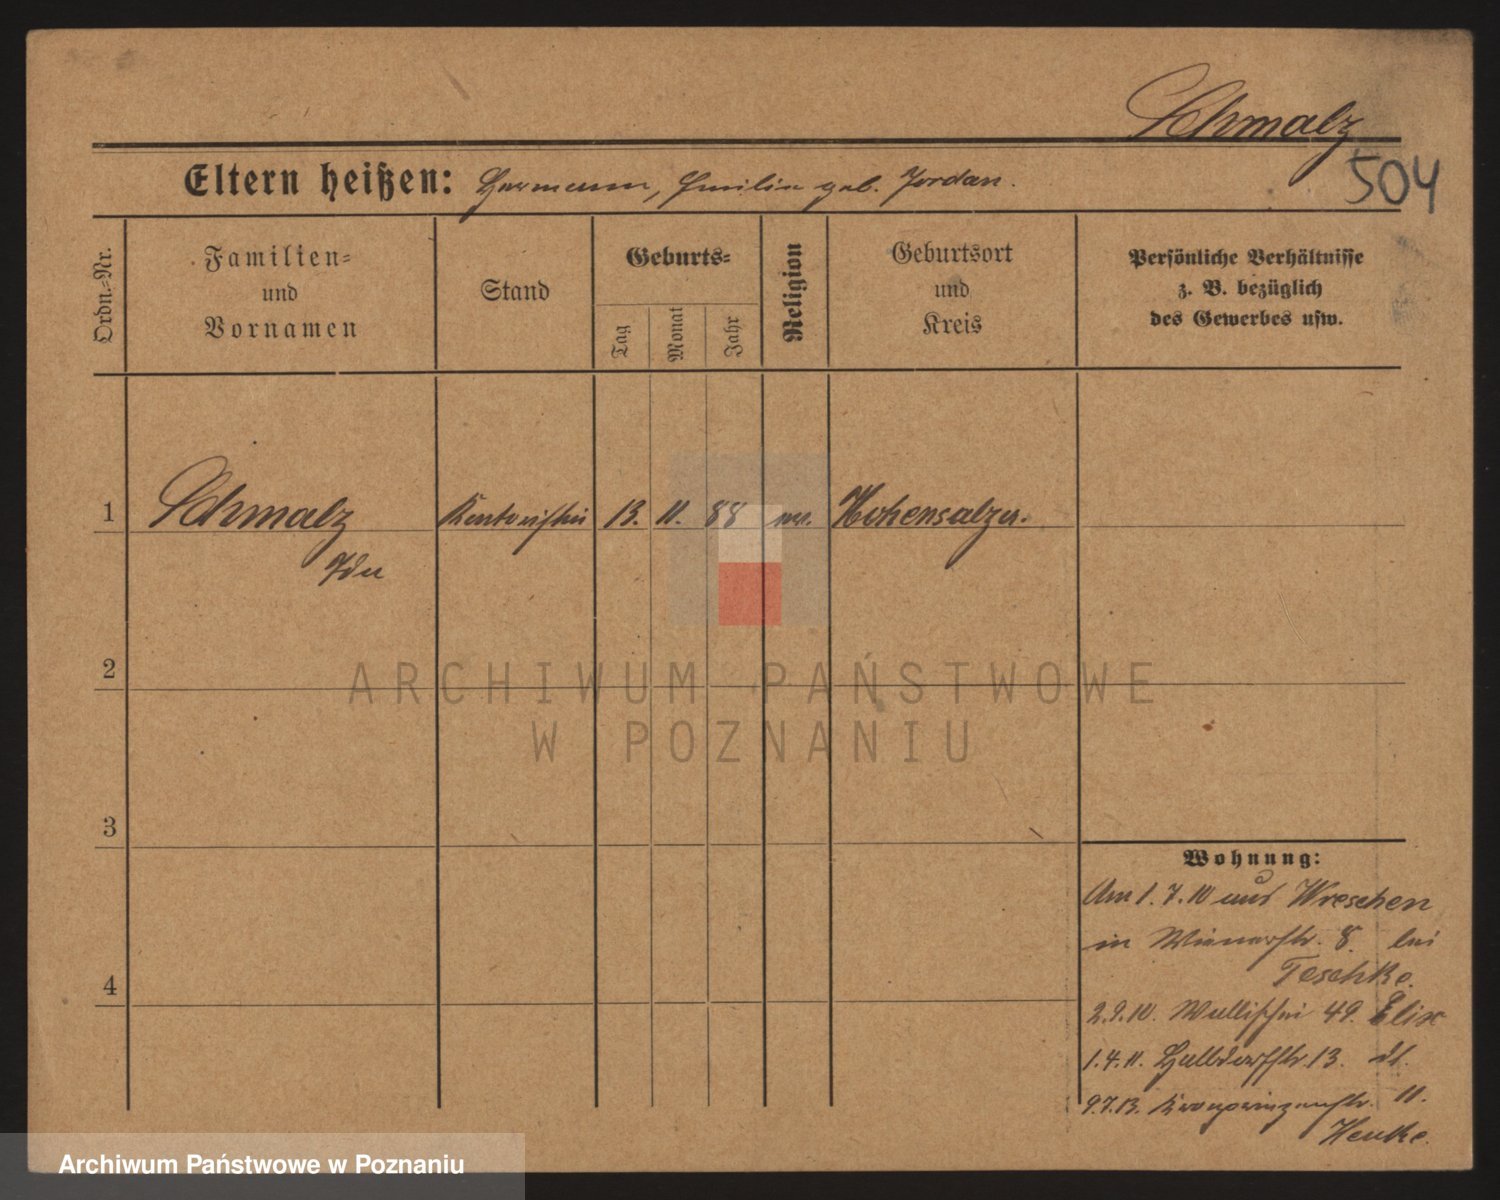 Schmalz
504
Eltern heißen: Hermann, Emilie geb. Jordan.
Ordn.=Nr.
Familien=
und
Vornamen
Stand
Geburts=
Tag
Monat
Jahr
Religion
Geburtsort
und
Kreis
Persönliche Verhältnisse
z. B. bezüglich
des Gewerbes usw.
1 Schmalz Kontoristin 13. 11. 88 Hohensalza.
Ida
2
3
4
ARCHIWUM PAŃSTWOWE
W POZNANIU
Wohnung:
Am 1.7.10 aus Wreschen
in Wienerstr. 8. bei
Teschke.
2.9.10. Wallischei 49. Elix
1.4.11. Halbdorfstr. 13. dt.
9.7.13. Kronprinzenstr. 11.
Henke.
Archiwum Państwowe w Poznaniu